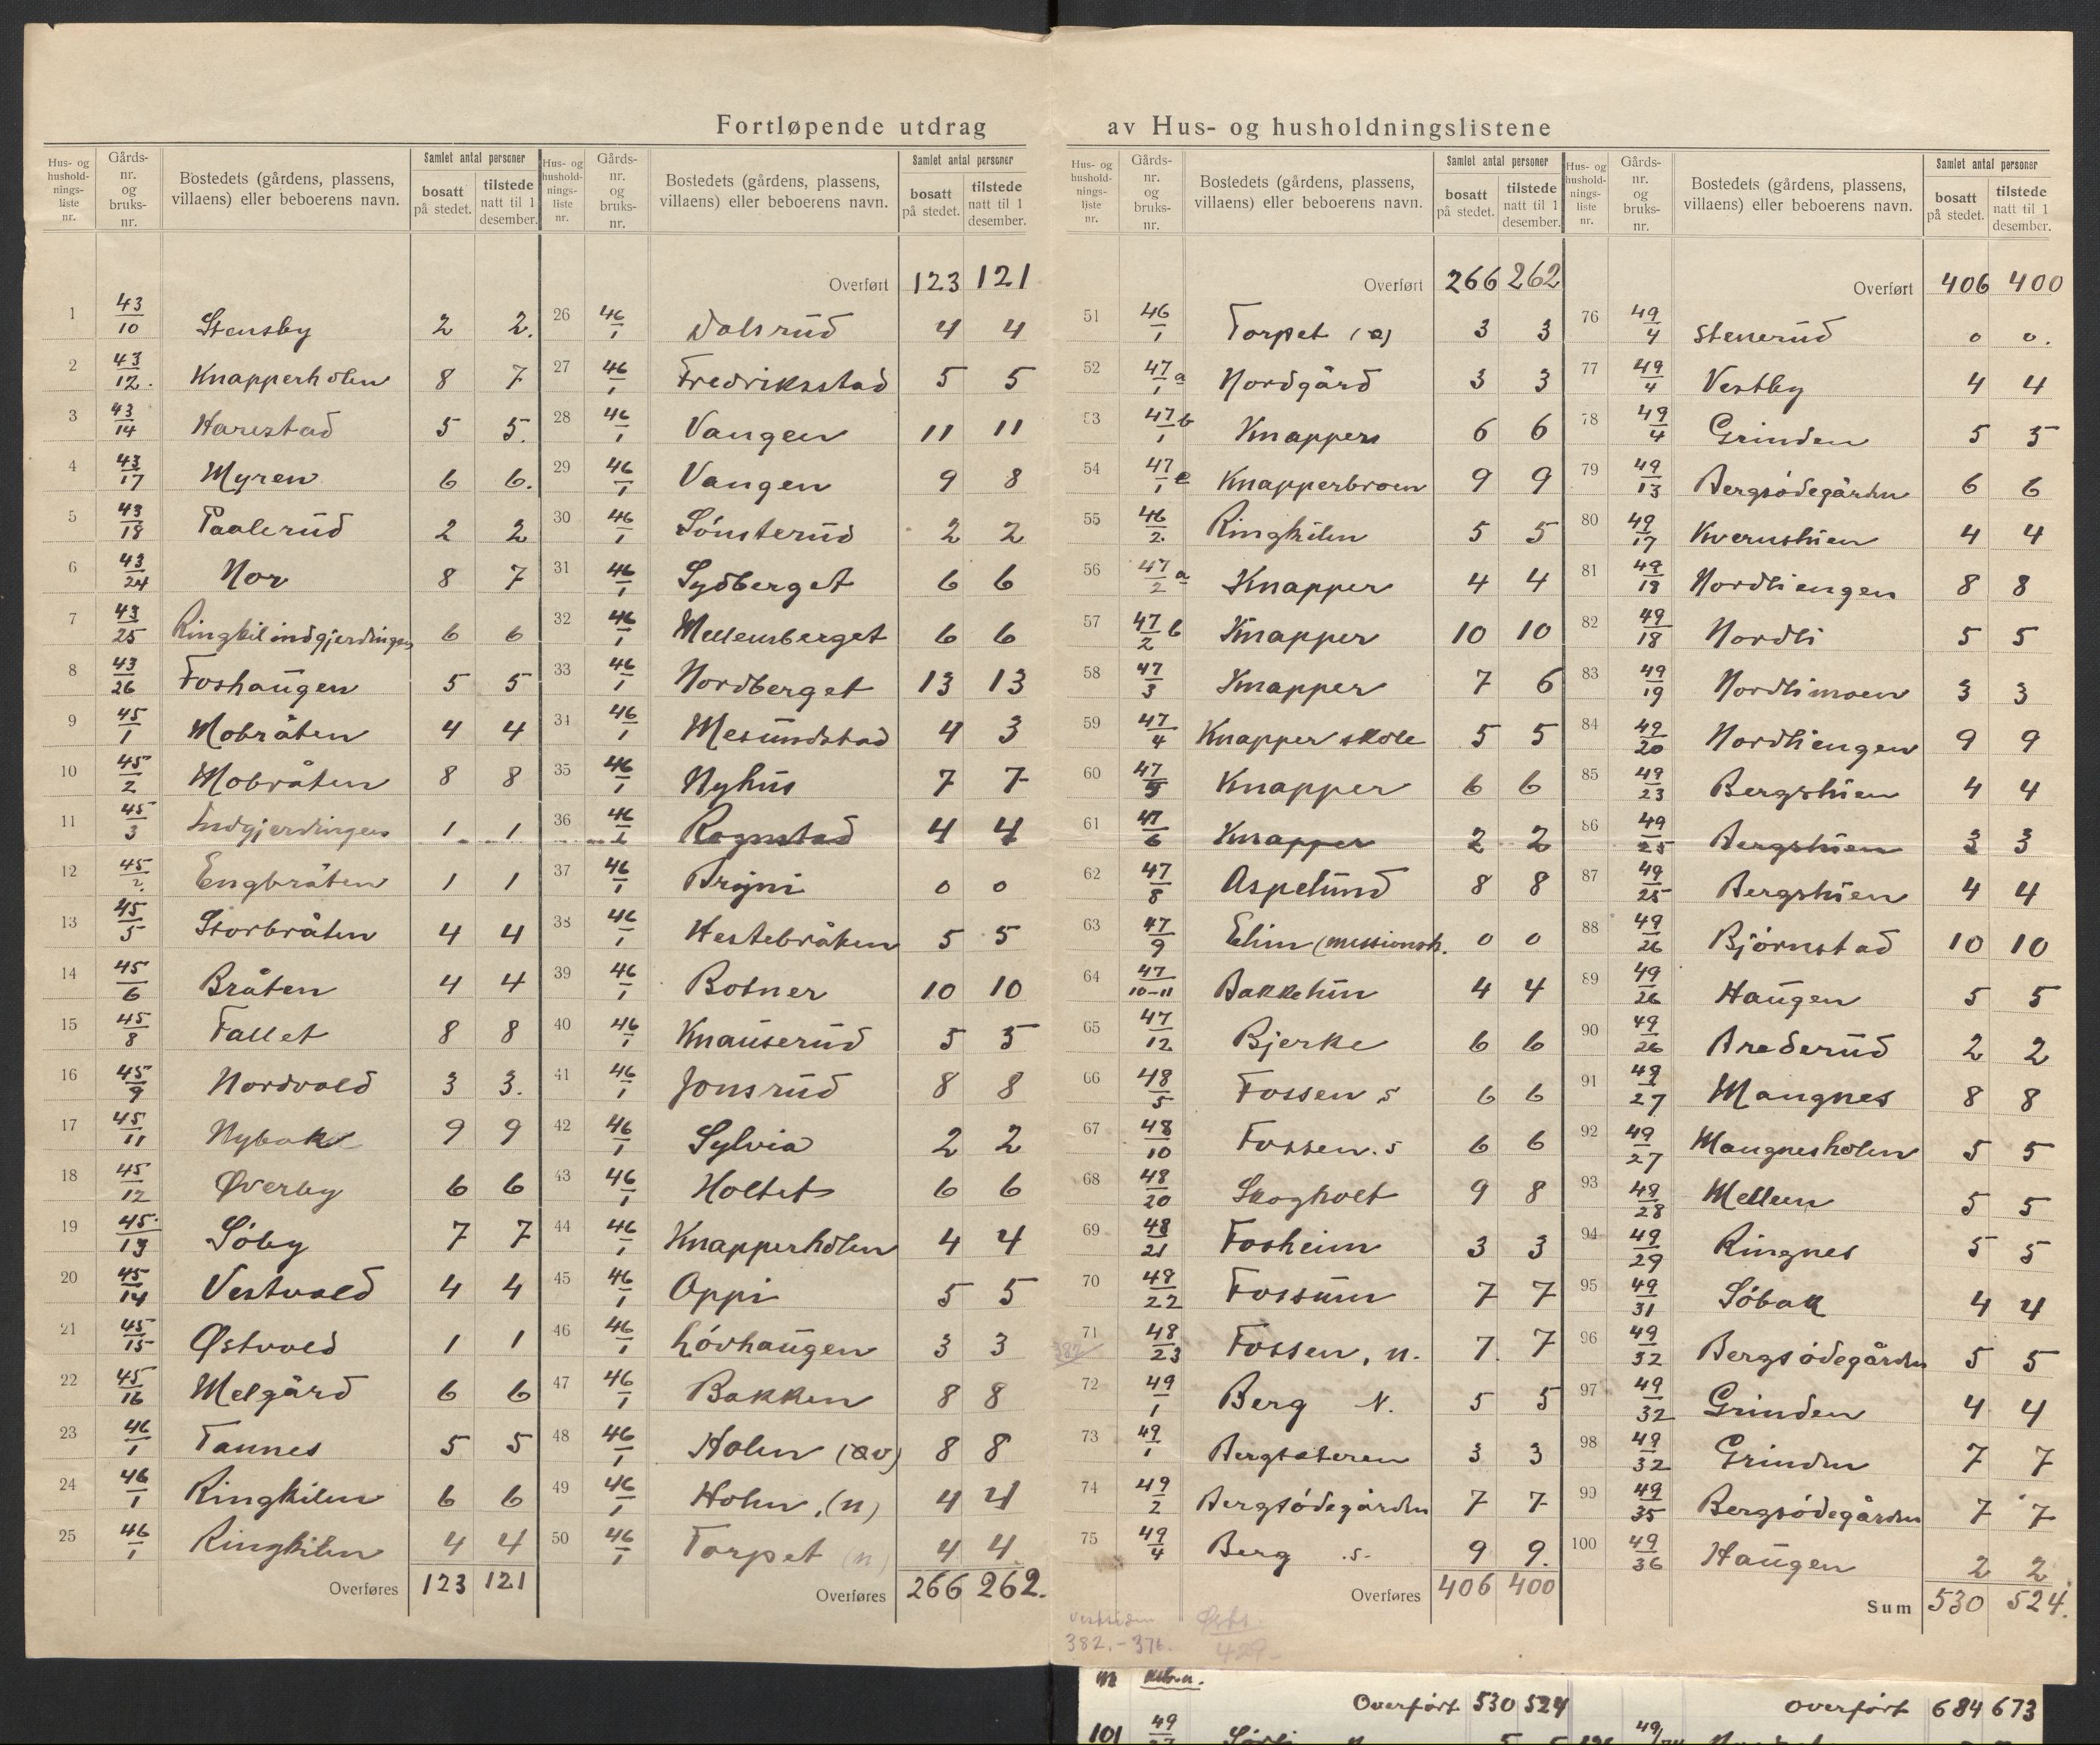 Fortløpende utdrag av Hus- og husholdningslistene
Hus- og hushold-nings-liste nr. Gårds-nr. og bruks-nr. Bostedets (gårdens, plassens, villaens) eller beboerens navn. Samlet antal personer bosatt på stedet. tilstede natt til 1 desember.
1 43/10 Stensby 2 2.
2 43/12. Knapperholen 8 7
3 43/14 Harestad 5 5.
4 43/17 Myren 6 6.
5 43/18 Paalerud 2 2
6 43/24 Nor 8 7
7 43/25 Ringkilindgjerdingen 6 6
8 43/26 Foshaugen 5 5
9 45/1 Mobråten 4 4
10 45/2 Mobråten 8 8
11 45/3 Indgjerdingen 1 1
12 45/2. Engbråten 1 1
13 45/5 Storbråten 4 4
14 45/6 Bråten 4 4
15 45/8 Fallet 8 8
16 45/9 Nordvold 3 3.
17 45/11 Nybak 9 9
18 45/12 Øverby 6 6
19 45/13 Söby 7 7
20 45/14 Vestvold 4 4
21 45/15 Østvold 1 1
22 45/16 Melgård 6 6
23 46/1 Tannes 5 5
24 46/1 Ringkilen 6 6
25 46/1 Ringkilen 4 4
Overføres 123 121
Hus- og hushold-nings-liste nr. Gårds-nr. og bruks-nr. Bostedets (gårdens, plassens, villaens) eller beboerens navn. Samlet antal personer bosatt på stedet. tilstede natt til 1 desember.
Overført 123 121
26 46/1 Dalsrud 4 4
27 46/1 Fredriksstad 5 5
28 46/1 Vangen 11 11
29 46/1 Vangen 9 8
30 46/1 Sönsterud 2 2
31 46/1 Sydberget 6 6
32 46/1 Mellemberget 6 6
33 46/1 Nordberget 13 13
34 46/1 Mesundstad 4 3
35 46/1 Nyhus 7 7
36 46/1 Rognstad 4 4
37 46/1 Bryni 0 0
38 46/1 Hestebråten 5 5
39 46/1 Botner 10 10
40 46/1 Knauserud 5 5
41 46/1 Jonsrud 8 8
42 46/1 Sylvia 2 2
43 46/1 Holtet 6 6
44 46/1 Knapperholen 4 4
45 46/1 Oppi 5 5
46 46/1 Lövhaugen 3 3
47 46/1 Bakken 8 8
48 46/1 Holen (av) 8 8
49 46/1 Holen. (n) 4 4
50 46/1 Torpet (n) 4 4
Overføres 266 262.
Hus- og hushold-nings-liste nr. Gårds-nr. og bruks-nr. Bostedets (gårdens, plassens, villaens) eller beboerens navn. Samlet antal personer bosatt på stedet. tilstede natt til 1 desember.
Overført 266 262
51 46/1 Torpet (ø) 3 3
52 47/1 a Nordgård 3 3
53 47/1 b Knapper 6 6
54 47/1 c Knapperbroen 9 9
55 46/2. Ringkilen 5 5
56 47/2 a Knapper 4 4
57 47/2 b Knapper 10 10
58 47/3 Knapper 7 6
59 47/4 Knapper skole 5 5
60 47/5 Knapper 6 6
61 47/6 Knapper 2 2
62 47/8 Aspelund 8 8
63 47/9 Elim (missionsh. 0 0
64 47/10-11 Bakketun 4 4
65 47/12 Bjerke 6 6
66 48/5 Fossen s 6 6
67 48/10 Fossen. s 6 6
68 48/20 Skogholt 9 8
69 48/21 Fosheim 3 3
70 48/22 Fossum 7 7
71 48/23 Fossen, n. 7 7
382
72 49/1 Berg N. 5 5
73 49/1 Bergsæteren 3 3
74 49/2 Bergsödegården 7 7
75 49/4 Berg .s. 9 9.
Overføres 406 400
Vestsiden
382.-376.
Hus- og hushold-nings-liste nr. Gårds-nr. og bruks-nr. Bostedets (gårdens, plassens, villaens) eller beboerens navn. Samlet antal personer bosatt på stedet. tilstede natt til 1 desember.
Overført 406 400
76 49/4 Stenerud 0 0.
77 49/4 Vestby 4 4
78 49/4 Grinden 5 5
79 49/13 Bergsödegården 6 6
80 49/17 Kvernstuen 4 4
81 49/18 Nordliengen 8 8
82 49/18 Nordli 5 5
83 49/19 Nordlimoen 3 3
84 49/20 Nordliengen 9 9
85 49/23 Bergstuen 4 4
86 49/25 Bergstuen 3 3
87 49/25 Bergstuen 4 4
88 49/26 Björnstad 10 10
89 49/26 Haugen 5 5
90 49/26 Brederud 2 2
91 49/27 Mangnes 8 8
92 49/27 Mangnesholen 5 5
93 49/28 Mellem 5 5
94 49/29 Ringnes 5 5
95 49/31 Söbak 4 4
96 49/32 Bergsödegården 5 5
97 49/32 Grinden 4 4
98 49/32 Grinden 7 7
99 49/35 Bergsödegården 7 7
100 49/36 Haugen 2 2
Sum 530 524.
Overført 530 524 Overført 684 673
101 49